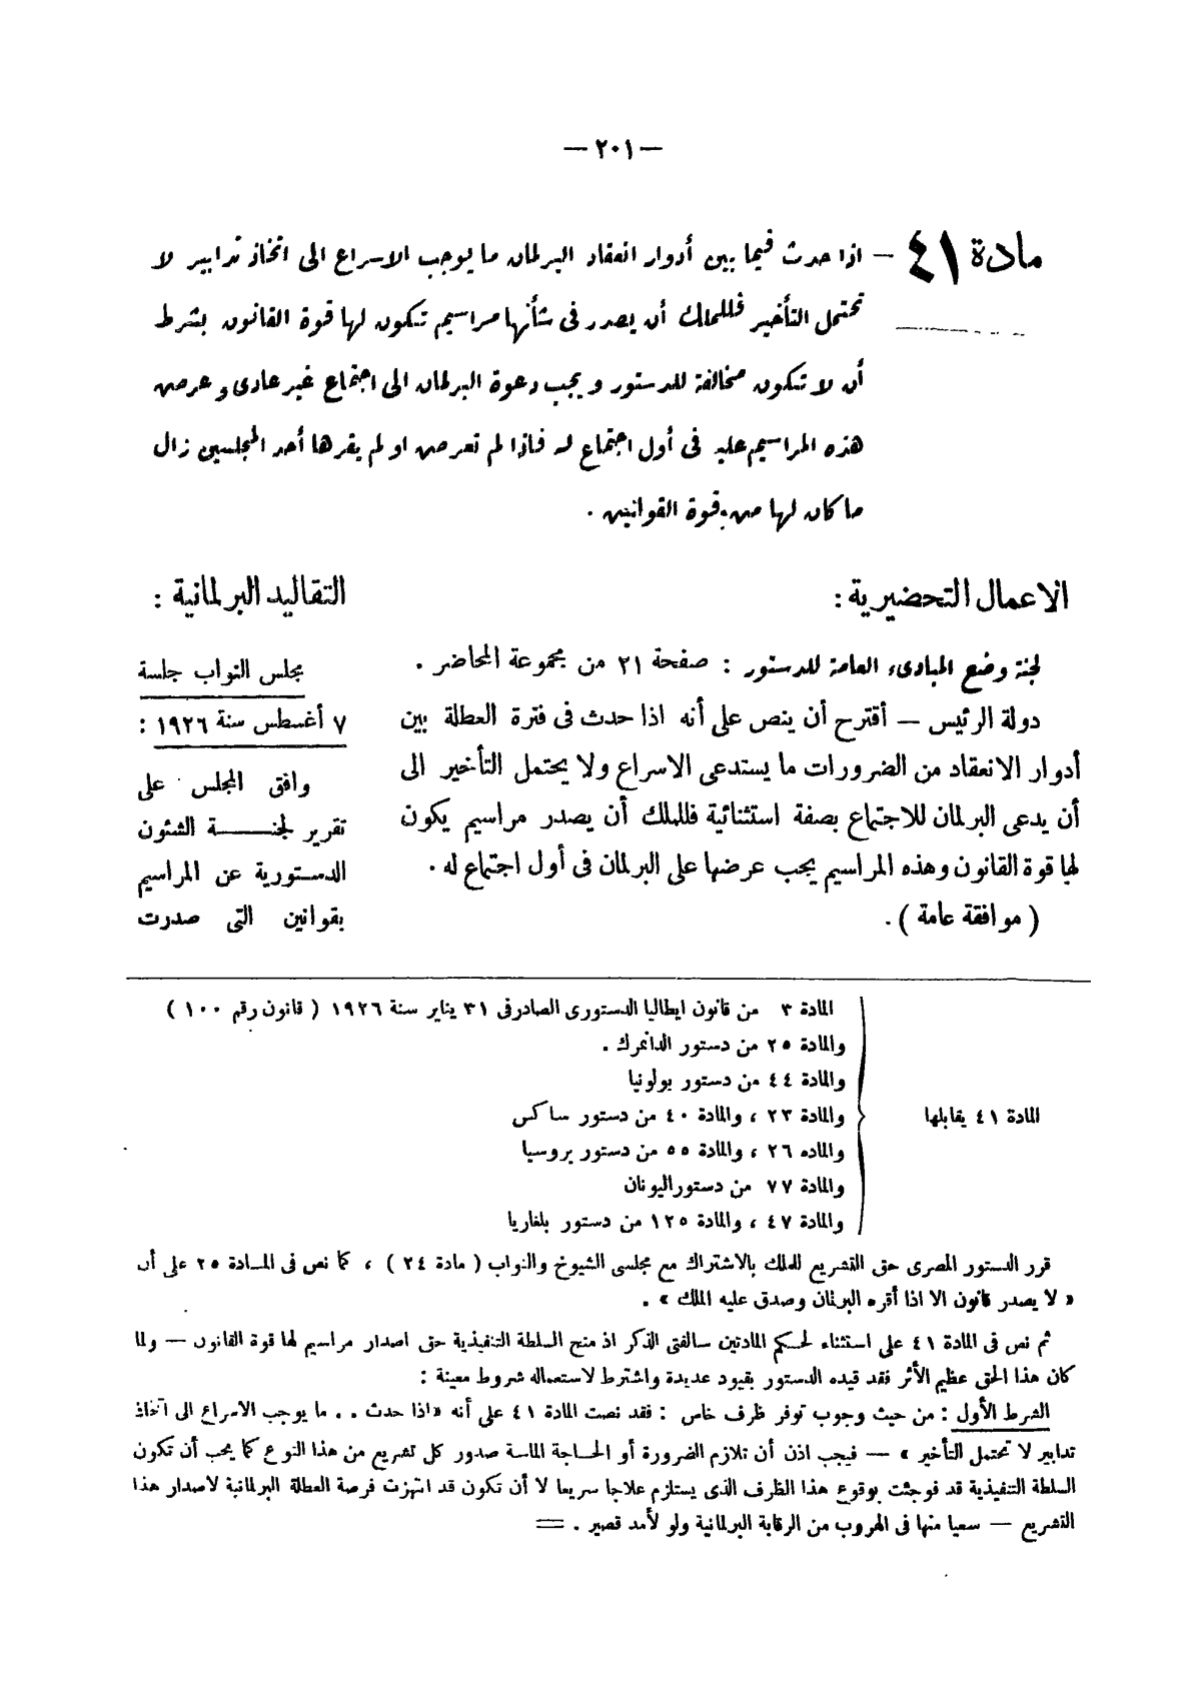 — ٢٠١ —
مادة ٤١ — اذا حدث فيما بين أدوار انعقاد البرلمان ما يوجب الاسراع الى اتخاذ تدابير لا
تحتمل التأخير فللملك أن يصدر فى شأنها مراسيم تكون لها قوة القانون بشرط
أن لا تكون مخالفة للدستور ويجب دعوة البرلمان الى اجتماع غير عادى وعرض
هذه المراسيم عليه فى أول اجتماع له فاذا لم تعرض او لم يقرها أحد المجلسين زال
ما كان لها من قوة القوانين .
الاعمال التحضيرية :
لجنة وضع المبادىء العامة للدستور : صفحة ٢١ من مجموعة المحاضر .
دولة الرئيس — أقترح أن ينص على أنه اذا حدث فى فترة العطلة بين
أدوار الانعقاد من الضرورات ما يستدعى الاسراع ولا يحتمل التأخير الى
أن يدعى البرلمان للاجتماع بصفة استثنائية فللملك أن يصدر مراسيم يكون
لها قوة القانون وهذه المراسيم يجب عرضها على البرلمان فى أول اجتماع له .
( موافقة عامة ) .
التقاليد البرلمانية :
مجلس النواب جلسة
٧ أغسطس سنة ١٩٢٦ :
وافق المجلس على
تقرير لجنـــة الشئون
الدستورية عن المراسيم
بقوانين التى صدرت
المادة ٤١ يقابلها
المادة ٣ من قانون ايطاليا الدستورى الصادر فى ٣١ يناير سنة ١٩٢٦ ( قانون رقم ١٠٠ )
والمادة ٢٥ من دستور الدانمرك .
والمادة ٤٤ من دستور بولونيا
والمادة ٢٣ ، والمادة ٤٠ من دستور ساكس
والماده ٢٦ ، والمادة ٥٥ من دستور بروسيا
والمادة ٧٧ من دستور اليونان
والمادة ٤٧ ، والمادة ١٢٥ من دستور بلغاريا
قرر الدستور المصرى حق التشريع للملك بالاشتراك مع مجلسى الشيوخ والنواب ( مادة ٢٤ ) ، كما نص فى المادة ٢٥ على أن
« لا يصدر قانون الا اذا أقره البرلمان وصدق عليه الملك » .
ثم نص فى المادة ٤١ على استثناء لحكم المادتين سالفتى الذكر اذ منح السلطة التنفيذية حق اصدار مراسيم لها قوة القانون — ولما
كان هذا الحق عظيم الأثر فقد قيده الدستور بقيود عديدة واشترط لاستعماله شروط معينة :
الشرط الأول : من حيث وجوب توفر ظرف خاص : فقد نصت المادة ٤١ على أنه « اذا حدث . . ما يوجب الاسراع الى اتخاذ
تدابير لا تحتمل التأخير » — فيجب اذن أن تلازم الضرورة أو الحاجة الماسة صدور كل تشريع من هذا النوع كما يجب أن تكون
السلطة التنفيذية قد فوجئت بوقوع هذا الظرف الذى يستلزم علاجا سريعا لا أن تكون قد انتهزت فرصة العطلة البرلمانية لاصدار هذا
التشريع — سعيا منها فى الهروب من الرقابة البرلمانية ولو لأمد قصير . =